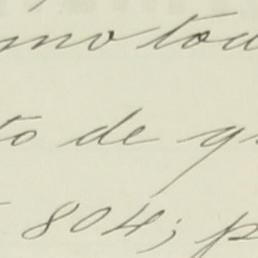 mo tod
to de q
804; p